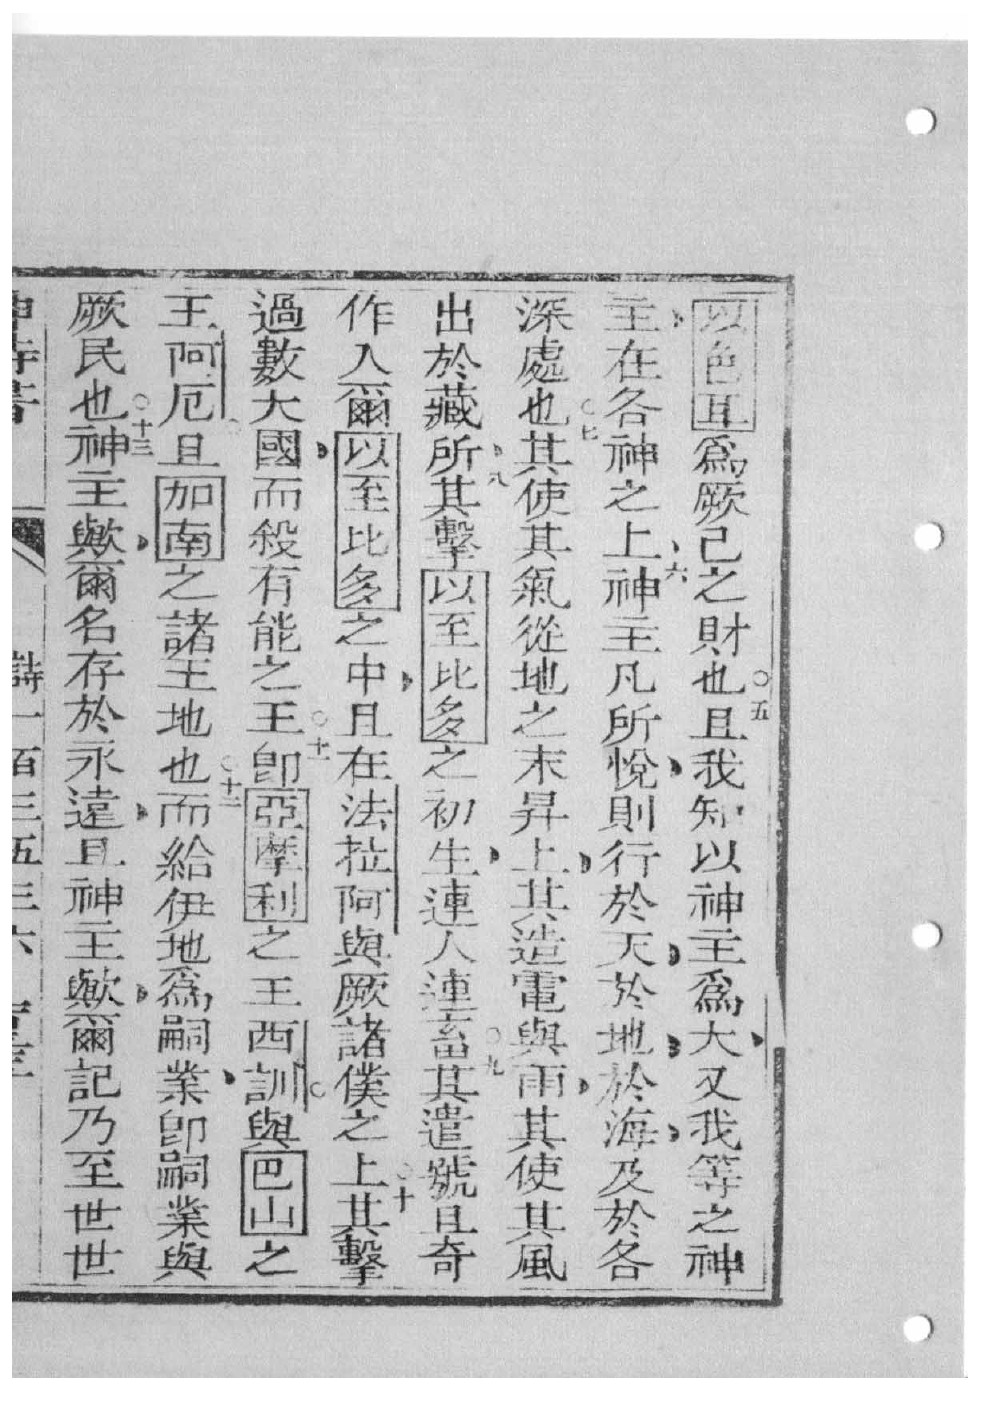 以色耳爲厥己之財也○五且我知以神主爲大又我等之神
主在各神之上六神主凡所悅則行於天於地於海及於各
深處也○七其使其氣從地之末昇上其造電與雨其使其風
出於藏所八其擊以至比多之初生連人連畜○九其遣號且奇
作入爾以至比多之中且在法扯阿與厥諸僕之上○十其擊
過數大國而殺有能之王○十一卽亞摩利之王西訓與巴山之
王阿厄且加南之諸王地也○十二而給伊地爲嗣業卽嗣業與
厥民也○十三神主歟爾名存於永遠且神主歟爾記乃至世世
詩一百三五三六